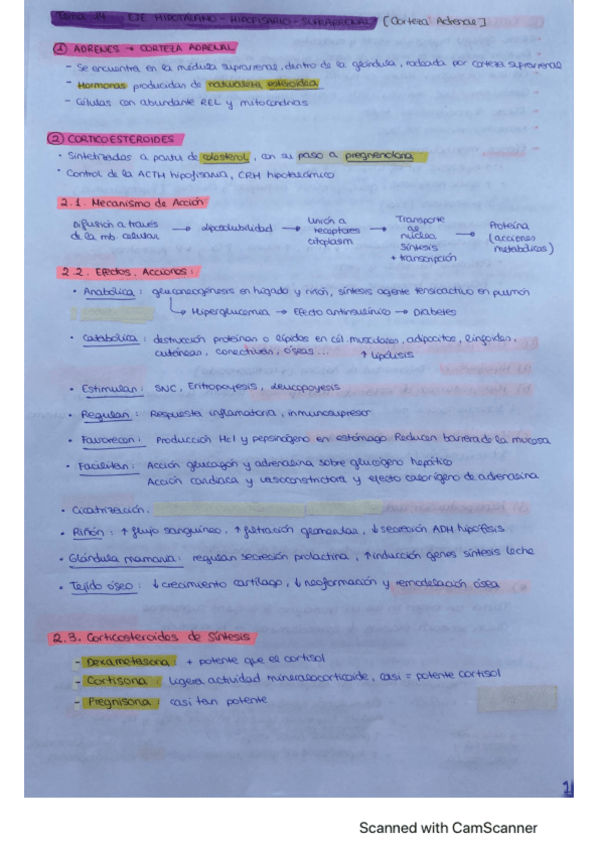 Tema 14 EJE HIPOTALAMO - HIPOFISARIO - SUPRARRENAL [Corteza Adrenal]
① ADRENES → CORTEZA ADRENAL
- Se encuentra en la médula suprarrenal, dentro de la glándula, rodeada por corteza suprarrenal
- Hormonas producidas de naturaleza esteroidea
- Células con abundante REL y mitocondrias
② CORTICOESTEROIDES
• Sintetizados a partir de colesterol, con su paso a pregnenolona
• Control de la ACTH hipofisaria, CRH hipotalámico
2.1. Mecanismo de Acción:
Difusión a través de la mb. celular → liposolubilidad → Unión a receptores citoplasm → Transporte al núcleo, síntesis + transcripción → Proteína (acciones metabólicas)
2.2. Efectos. Acciones:
• Anabólica: gluconeogénesis en hígado y riñón, síntesis agente tensioactivo en pulmón
↳ Hiperglucemia → Efecto antiinsulínico → Diabetes
• Catabólica: destrucción proteínas o lípidos en cél. musculares, adipocitos, linfoides,
cutáneas, conectivas, óseas ... ↑ lipólisis
• Estimulan: SNC, Eritropoyesis, leucopoyesis
• Regulan: Respuesta inflamatoria, inmunosupresor
• Favorecen: Producción HCl y pepsinógeno en estómago. Reducen barrera de la mucosa
• Facilitan: Acción glucagón y adrenalina sobre glucógeno hepático
Acción cardiaca y vasoconstrictora y efecto calorígeno de adrenalina
• Cicatrización.
• Riñón: ↑ flujo sanguíneo, ↑ filtración glomerular, ↓ secreción ADH hipófisis
• Glándula mamaria: regulan secreción prolactina, ↑ inducción genes síntesis leche
• Tejido óseo: ↓ crecimiento cartílago, ↓ neoformación y remodelación ósea
2.3. Corticosteroides de Síntesis
- Dexametasona: + potente que el cortisol
- Cortisona: ligera actividad mineralocorticoide, casi = potente cortisol
- Pregnisona: casi tan potente
1
Scanned with CamScanner